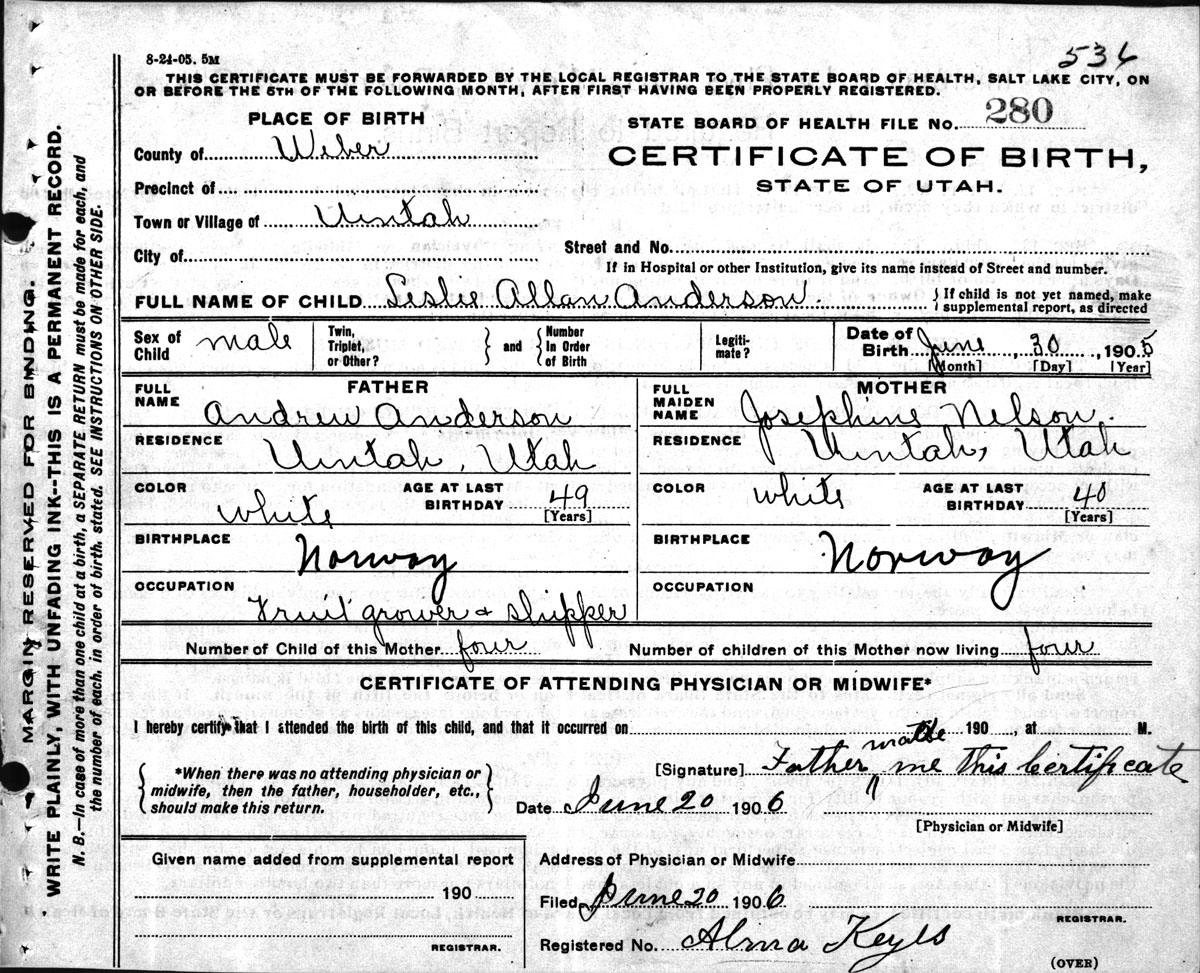 536
8-24-05. 5M
THIS CERTIFICATE MUST BE FORWARDED BY THE LOCAL REGISTRAR TO THE STATE BOARD OF HEALTH, SALT LAKE CITY, ON
OR BEFORE THE 5TH OF THE FOLLOWING MONTH, AFTER FIRST HAVING BEEN PROPERLY REGISTERED.
PLACE OF BIRTH
STATE BOARD OF HEALTH FILE No. 280
County of Weber
CERTIFICATE OF BIRTH,
STATE OF UTAH.
Precinct of
Town or Village of Uintah
City of
Street and No.
If in Hospital or other Institution, give its name instead of Street and number.
FULL NAME OF CHILD Leslie Allan Anderson. } If child is not yet named, make
supplemental report, as directed
Sex of Child male Twin, Triplet, or Other? } and { Number In Order of Birth Legiti- mate? Date of Birth June, 30, 1905
[Month] [Day] [Year]
FATHER
FULL NAME Andrew Anderson
RESIDENCE Uintah, Utah
COLOR white AGE AT LAST BIRTHDAY 49 [Years]
BIRTHPLACE Norway
OCCUPATION
Fruit grower & shipper
MOTHER
FULL MAIDEN NAME Josephine Nelson.
RESIDENCE Uintah, Utah
COLOR white AGE AT LAST BIRTHDAY 40 [Years]
BIRTHPLACE Norway
OCCUPATION
Number of Child of this Mother four Number of children of this Mother now living four
CERTIFICATE OF ATTENDING PHYSICIAN OR MIDWIFE*
I hereby certify that I attended the birth of this child, and that it occurred on 190 , at M.
{ *When there was no attending physician or
midwife, then the father, householder, etc.,
should make this return. }
[Signature] Father made me this Certificate
Date June 20 1906
[Physician or Midwife]
Given name added from supplemental report
190
REGISTRAR.
Address of Physician or Midwife
Filed June 20 1906
REGISTRAR.
Registered No. Alma Keyes
(OVER)
MARGIN RESERVED FOR BINDING.
WRITE PLAINLY, WITH UNFADING INK--THIS IS A PERMANENT RECORD.
N. B.—In case of more than one child at a birth, a SEPARATE RETURN must be made for each, and
the number of each, in order of birth, stated. SEE INSTRUCTIONS ON OTHER SIDE.